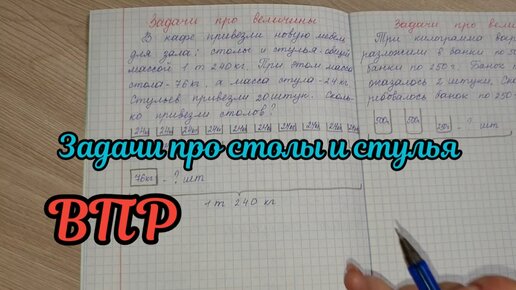 Задачи про величины
В кафе привезли новую мебель
для зала: столы и стулья общей
массой 1 т 240 кг. При этом масса
стола - 76 кг, а масса стула - 24 кг
Стульев привезли 20 штук. Сколь-
ко привезли столов?
24кг 24кг 24кг 24кг 24кг 24кг 24кг 24кг
Задачи про столы и стулья
76кг - ? шт
ВПР
1 т 240 кг
Задачи про вели
Три килограмма вар
разложили в банки по 50
банки по 250 г. Банок
оказалось 2 штуки. Ск
бовалось банок по 250
500г 500г 250г - ? шт